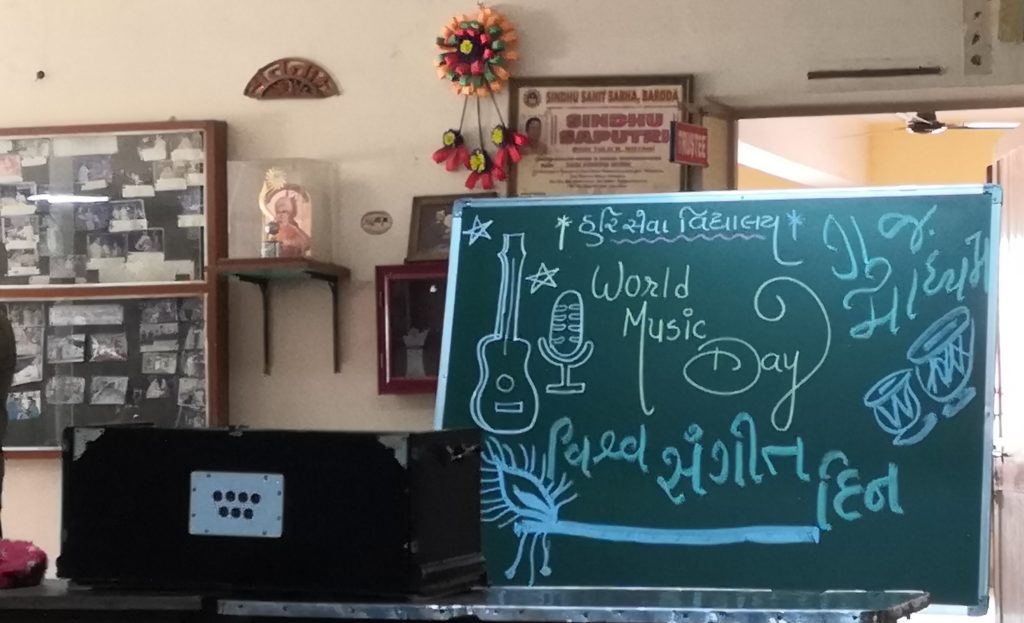 SINDHU SAHIT SABHA, BARODA
SINDHU
SAPUTRI
TRUSTEE
હરિસેવા વિદ્યાલય
ગુ.જ.
માધ્યમ
World
Music
Day
વિશ્વ સંગીત દિન